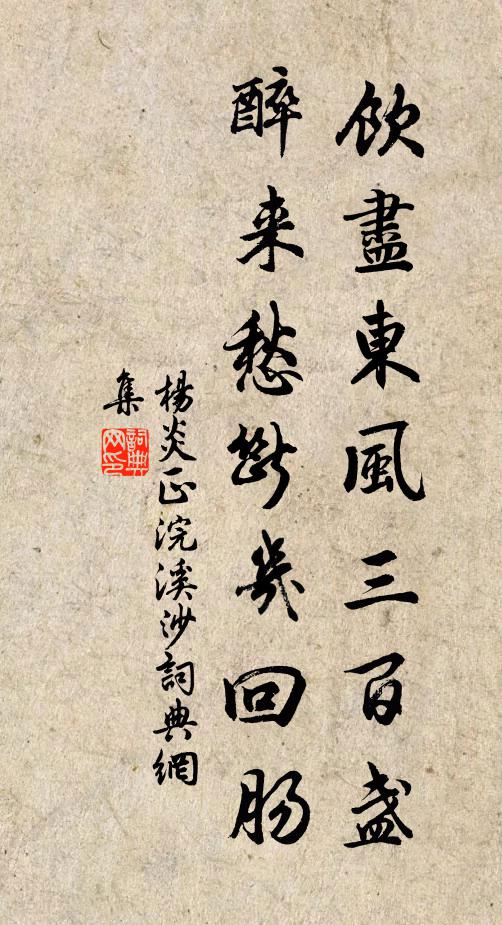 飲盡東風三百盞
醉来愁斷幾回肠
楊炎正浣溪沙詞典網
集
詞典网印